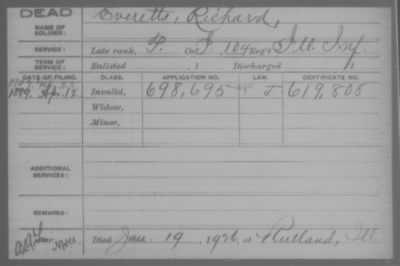 DEAD
NAME OF SOLDIER: Everetts, Richard,
SERVICE: Late rank, P. Co. F, 104 Reg't Ill. Inf.
TERM OF SERVICE: Enlisted , 1 Discharged , 1
DATE OF FILING. CLASS. APPLICATION NO. LAW. CERTIFICATE NO.
1889, Ap. 12 Invalid, 698,695 J 619,805
Widow,
Minor,
ADDITIONAL SERVICES:
REMARKS:
Died Jan. 19, 1926, at Rutland, Ill